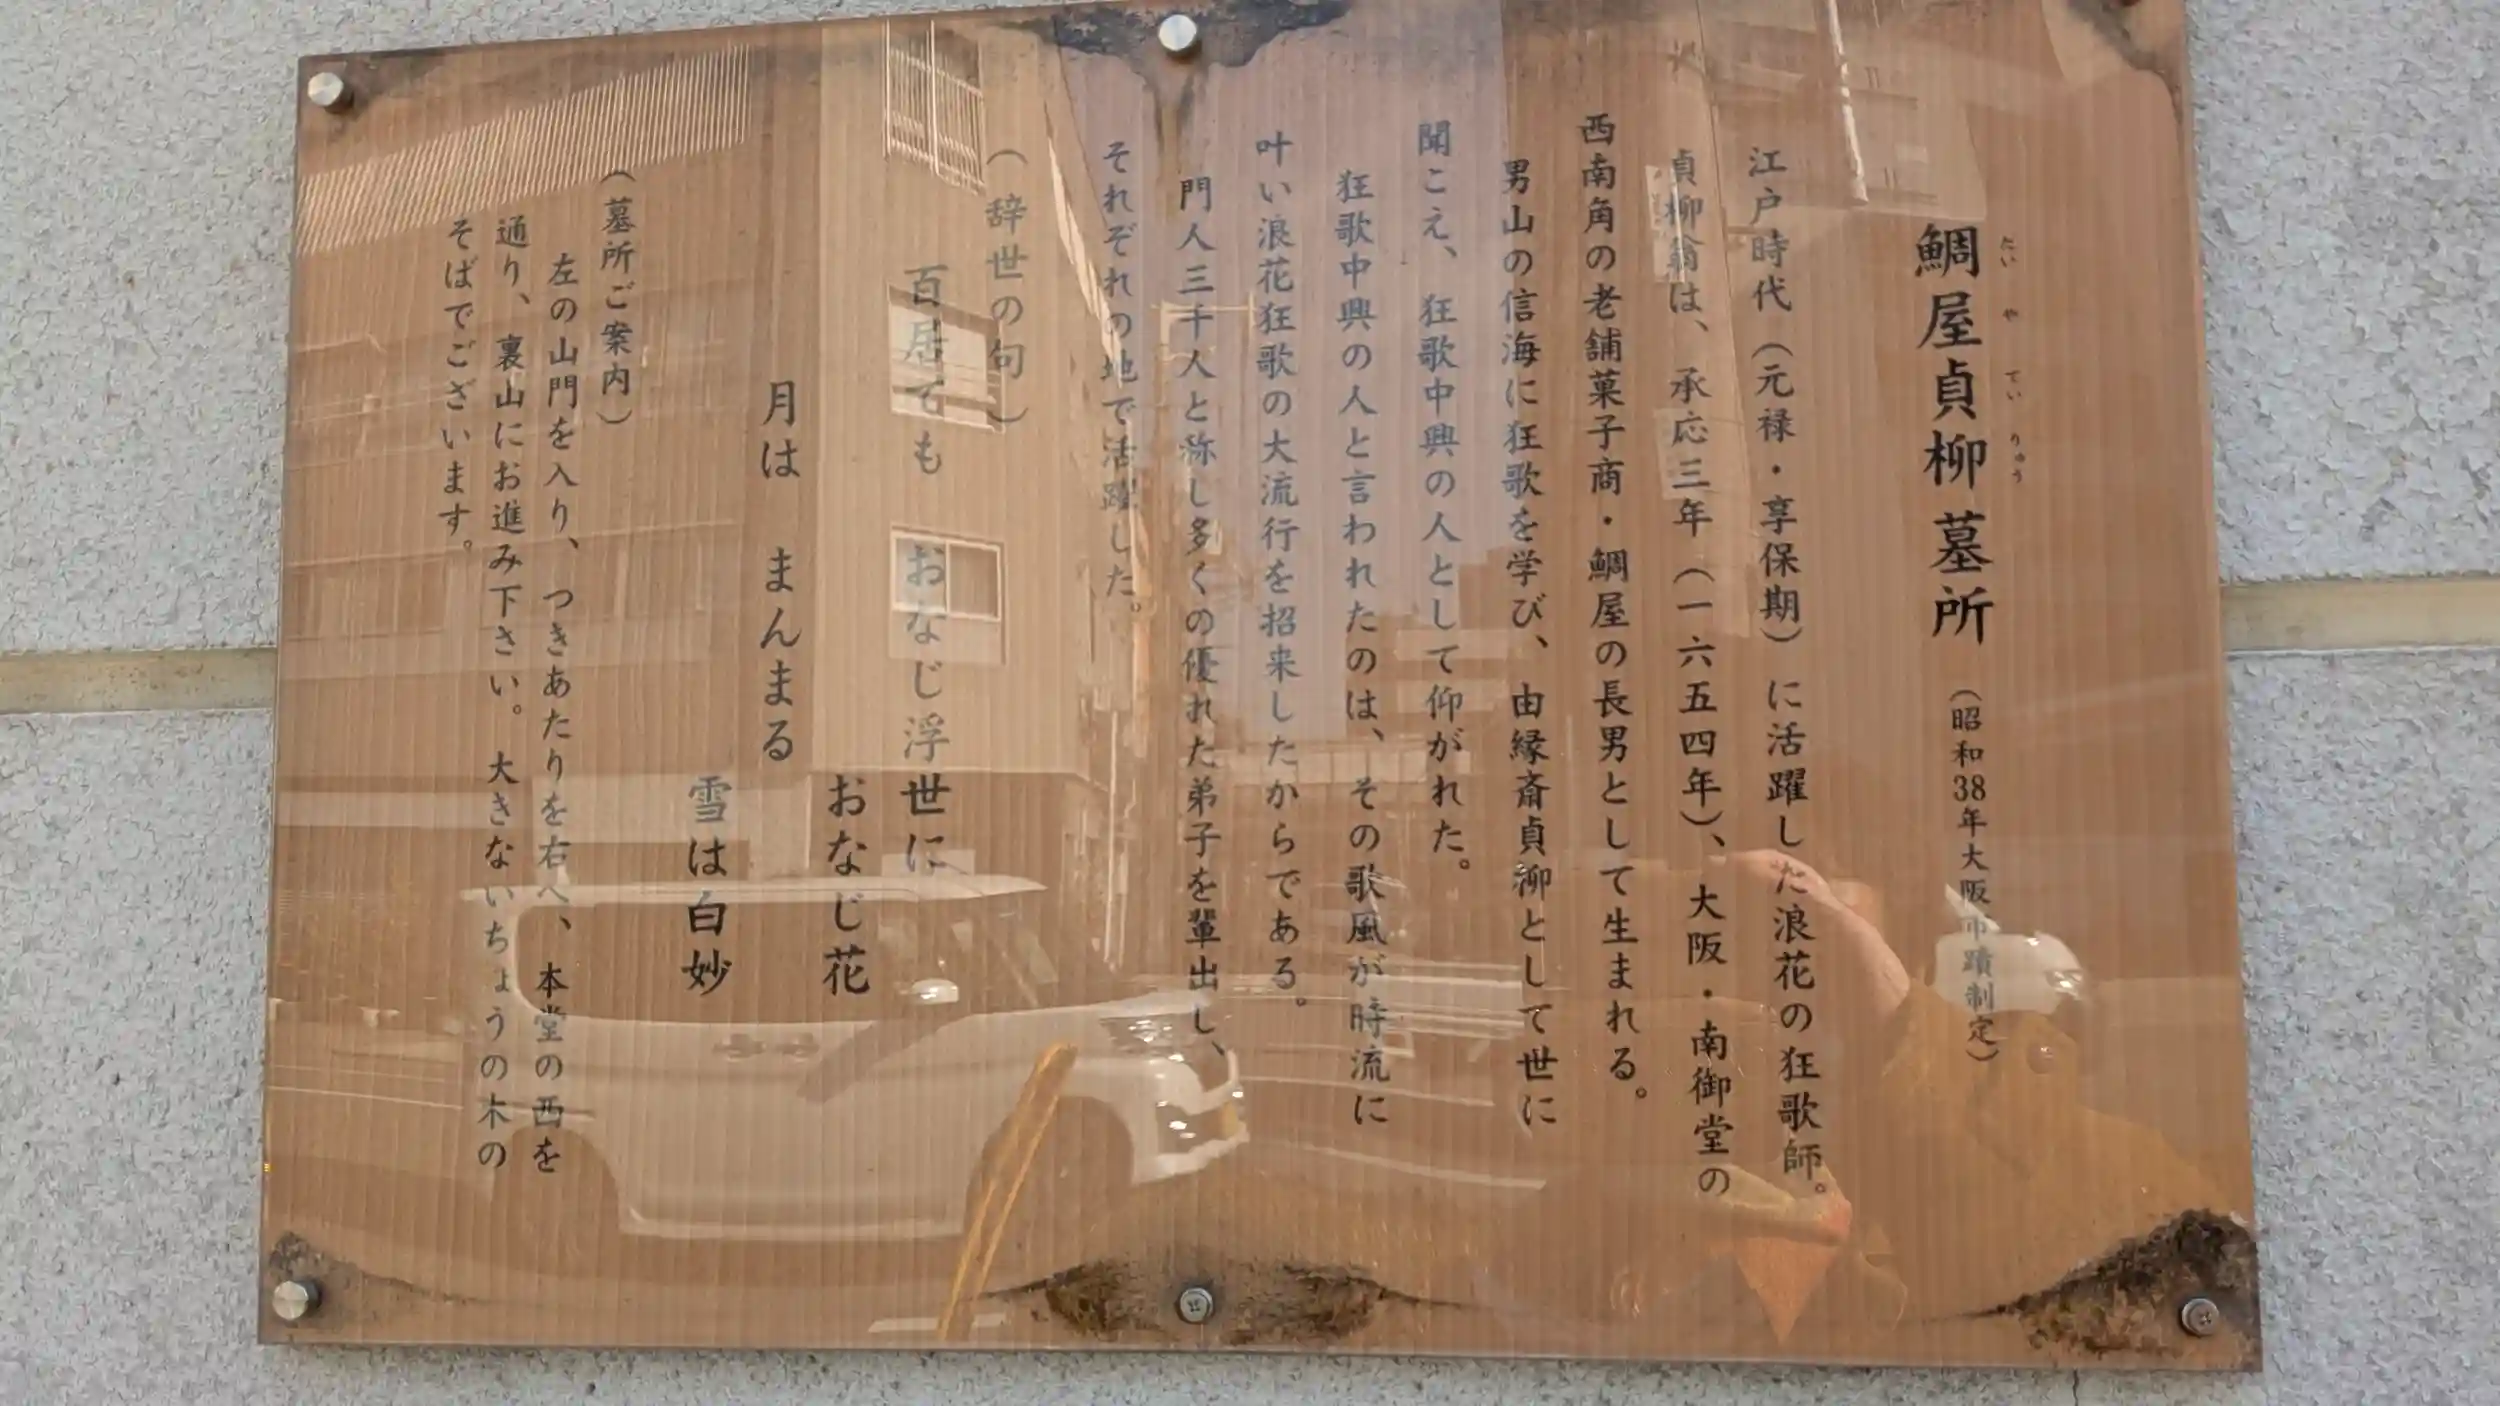 鯛屋貞柳墓所（昭和38年大阪市蹟制定）
たいやていりゅう
江戸時代（元禄・享保期）に活躍した浪花の狂歌師。
貞柳翁は、承応三年（一六五四年）、大阪・南御堂の
西南角の老舗菓子商・鯛屋の長男として生まれる。
男山の信海に狂歌を学び、由縁斎貞柳として世に
聞こえ、狂歌中興の人として仰がれた。
狂歌中興の人と言われたのは、その歌風が時流に
叶い浪花狂歌の大流行を招来したからである。
門人三千人と称し多くの優れた弟子を輩出し、
それぞれの地で活躍した。
（辞世の句）
百居ても おなじ浮世に
おなじ花
月は まんまる
雪は白妙
（墓所ご案内）
左の山門を入り、つきあたりを右へ、本堂の西を
通り、裏山にお進み下さい。大きないちょうの木の
そばでございます。